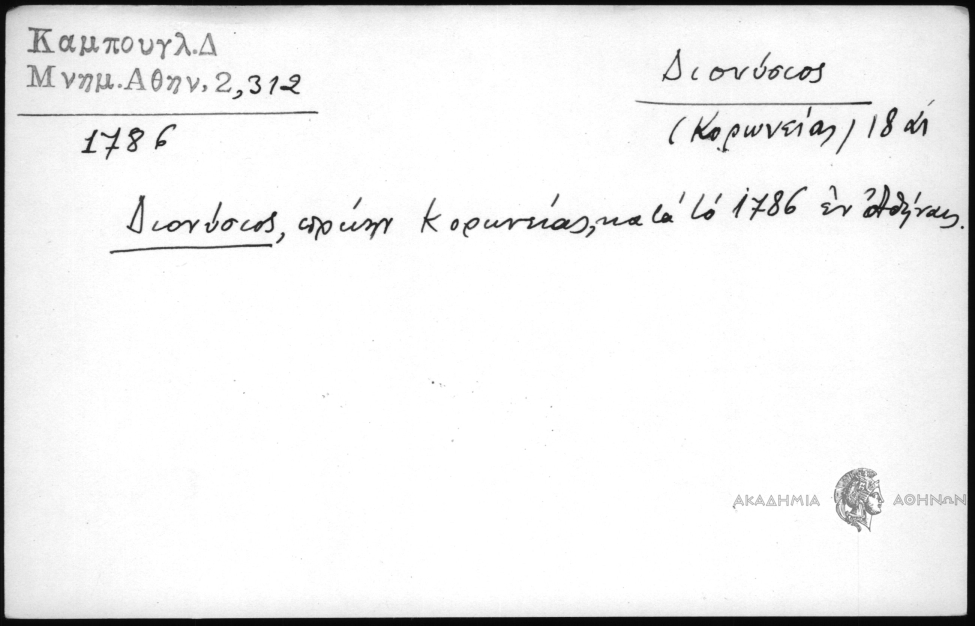 Καμπουγλ.Δ
Μνημ.Αθην. 2,312
1786
Διονύσιος
(Κορωνείας) 18 αἰ
Διονύσιος, πρώην Κορωνείας, κατά τό 1786 ἐν Ἀθήναις.
ΑΚΑΔΗΜΙΑ ΑΘΗΝΩΝ